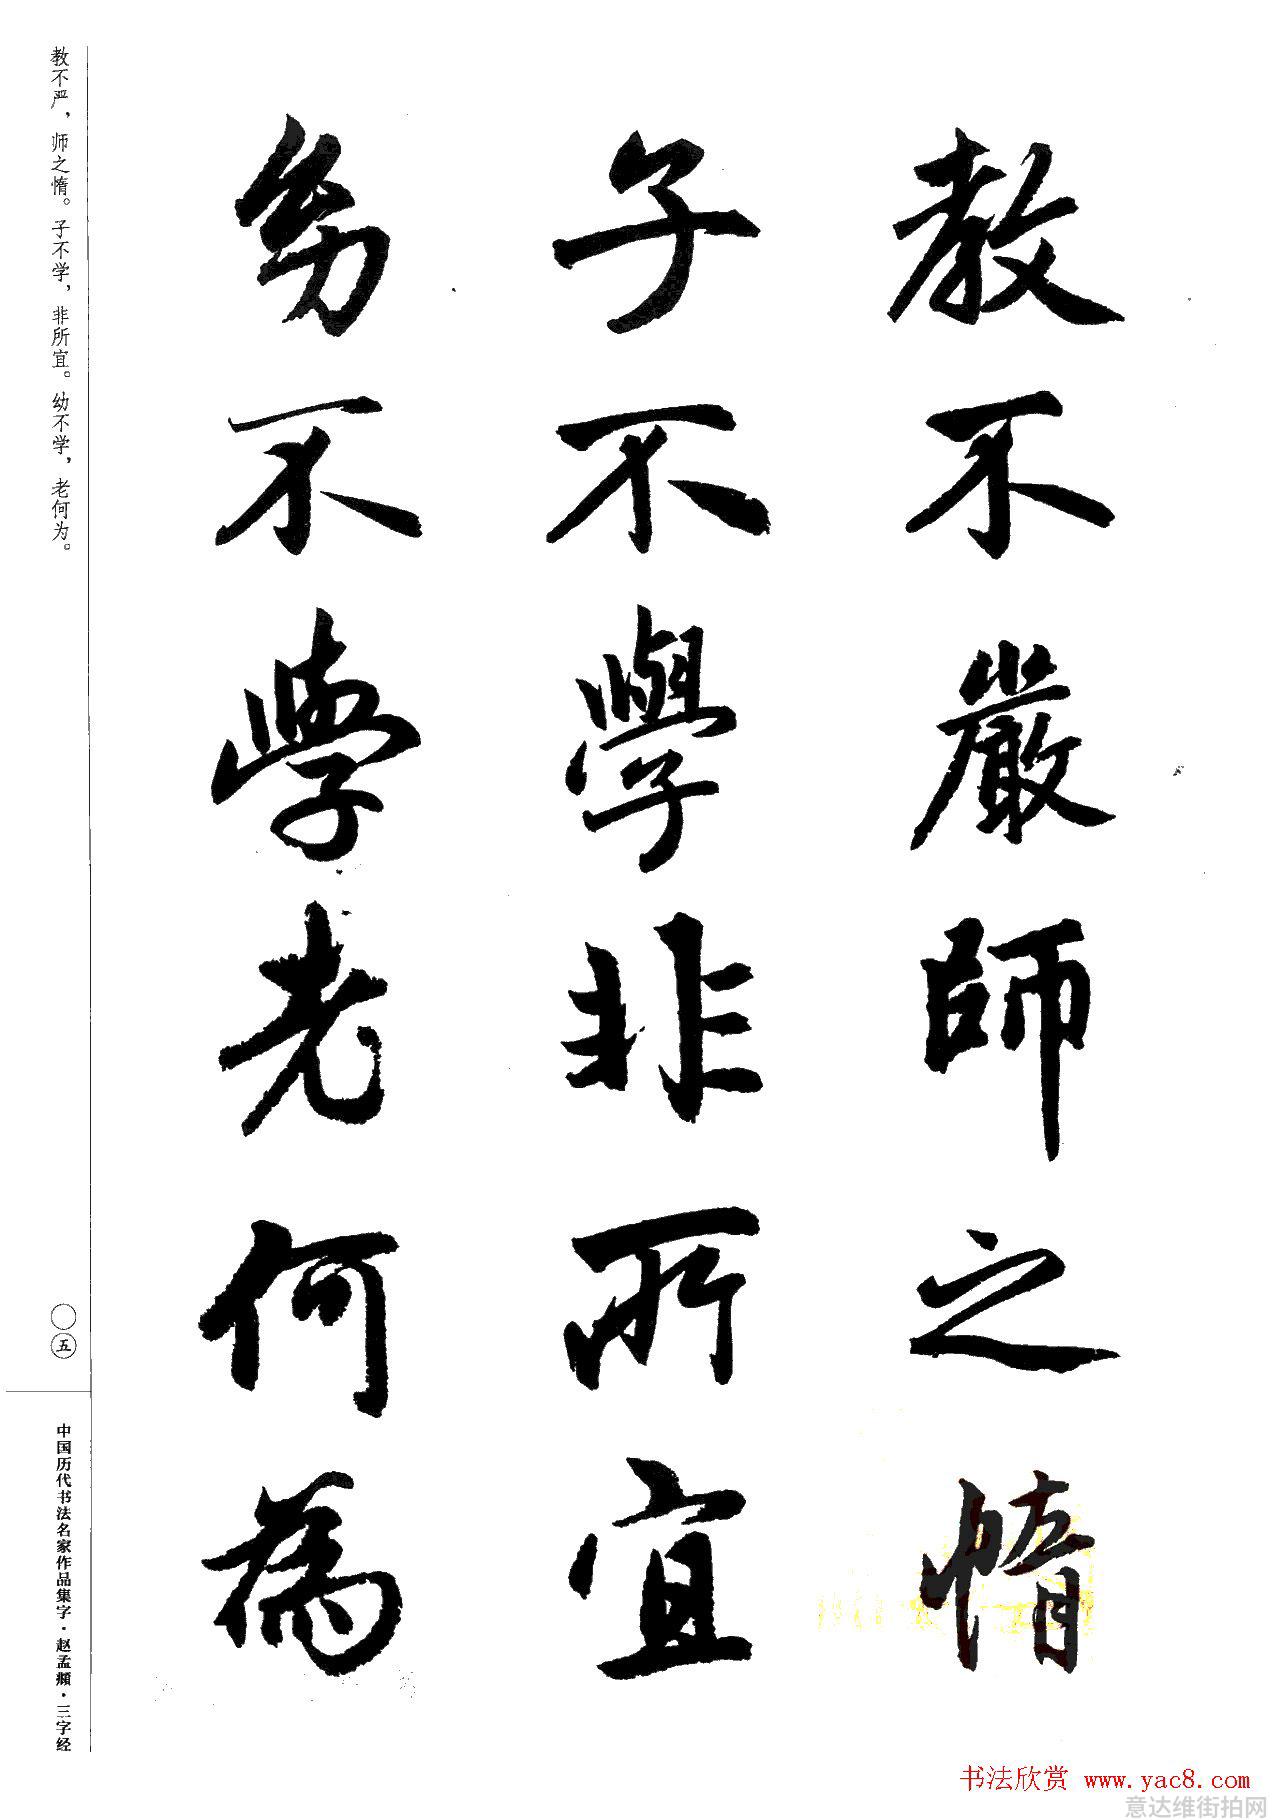 教不嚴師之惰
子不學非所宜
幼不學老何為
教不严，师之惰。子不学，非所宜。幼不学，老何为。
〇五
中国历代书法名家作品集字·赵孟頫·三字经
书法欣赏 www.yac8.com
意达维街拍网